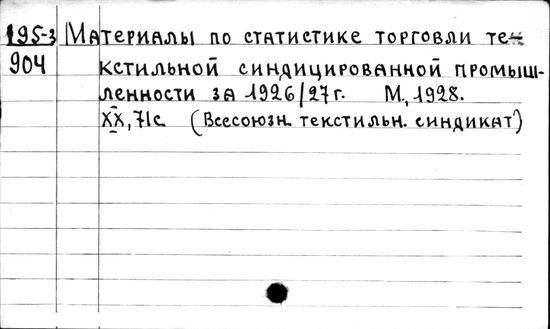 195-3 Материалы по статистике торговли те-
904 кстильной синдицированной промыш-
ленности за 1926/27г. М., 1928.
XX, 71с. (Всесоюзн. текстильн. синдикат)